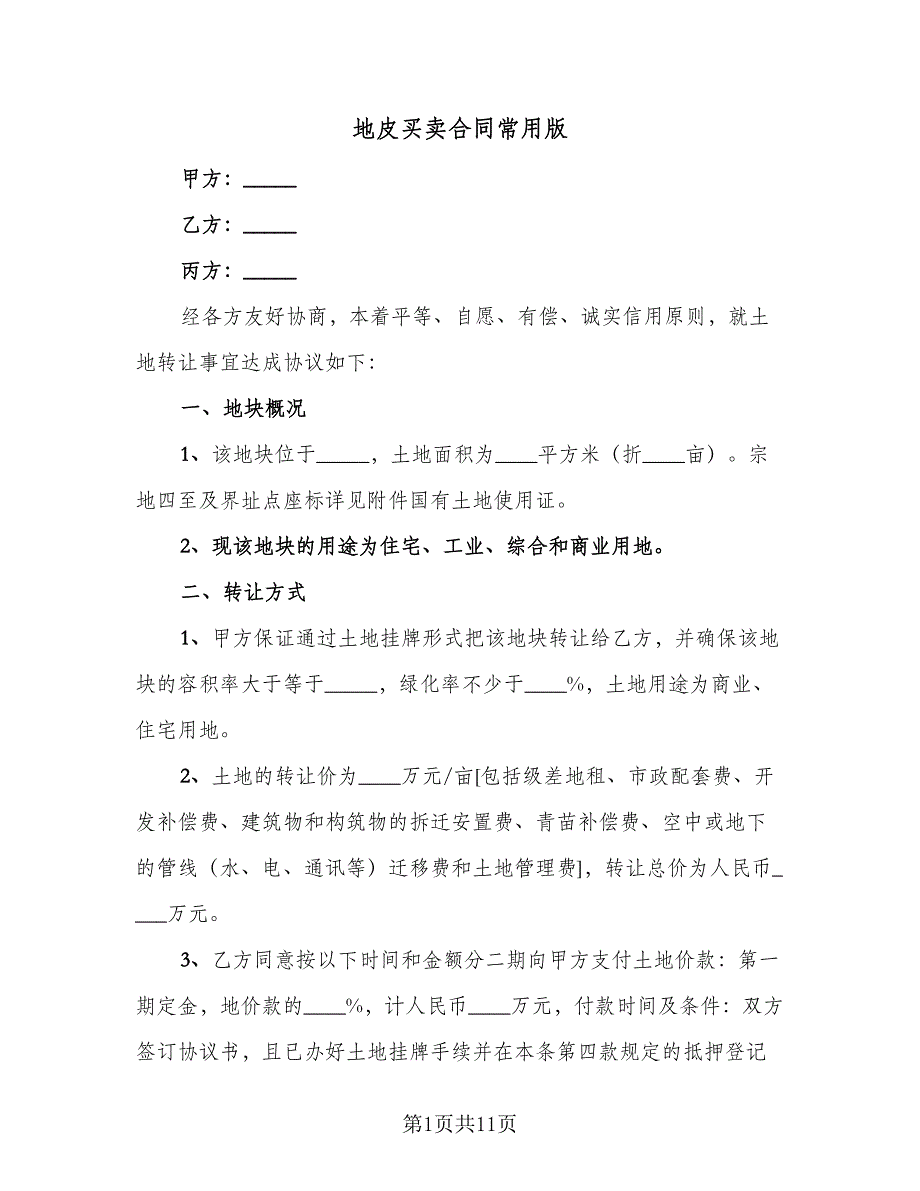 地皮买卖合同常用版
甲方：_____
乙方：_____
丙方：_____
经各方友好协商，本着平等、自愿、有偿、诚实信用原则，就土
地转让事宜达成协议如下：
一、地块概况
1、该地块位于_____，土地面积为____平方米（折____亩）。宗
地四至及界址点座标详见附件国有土地使用证。
2、现该地块的用途为住宅、工业、综合和商业用地。
二、转让方式
1、甲方保证通过土地挂牌形式把该地块转让给乙方，并确保该地
块的容积率大于等于_____，绿化率不少于____%，土地用途为商业、
住宅用地。
2、土地的转让价为____万元/亩[包括级差地租、市政配套费、开
发补偿费、建筑物和构筑物的拆迁安置费、青苗补偿费、空中或地下
的管线（水、电、通讯等）迁移费和土地管理费]，转让总价为人民币_
___万元。
3、乙方同意按以下时间和金额分二期向甲方支付土地价款：第一
期定金，地价款的____%，计人民币____万元，付款时间及条件：双方
签订协议书，且已办好土地挂牌手续并在本条第四款规定的抵押登记
第1页共11页